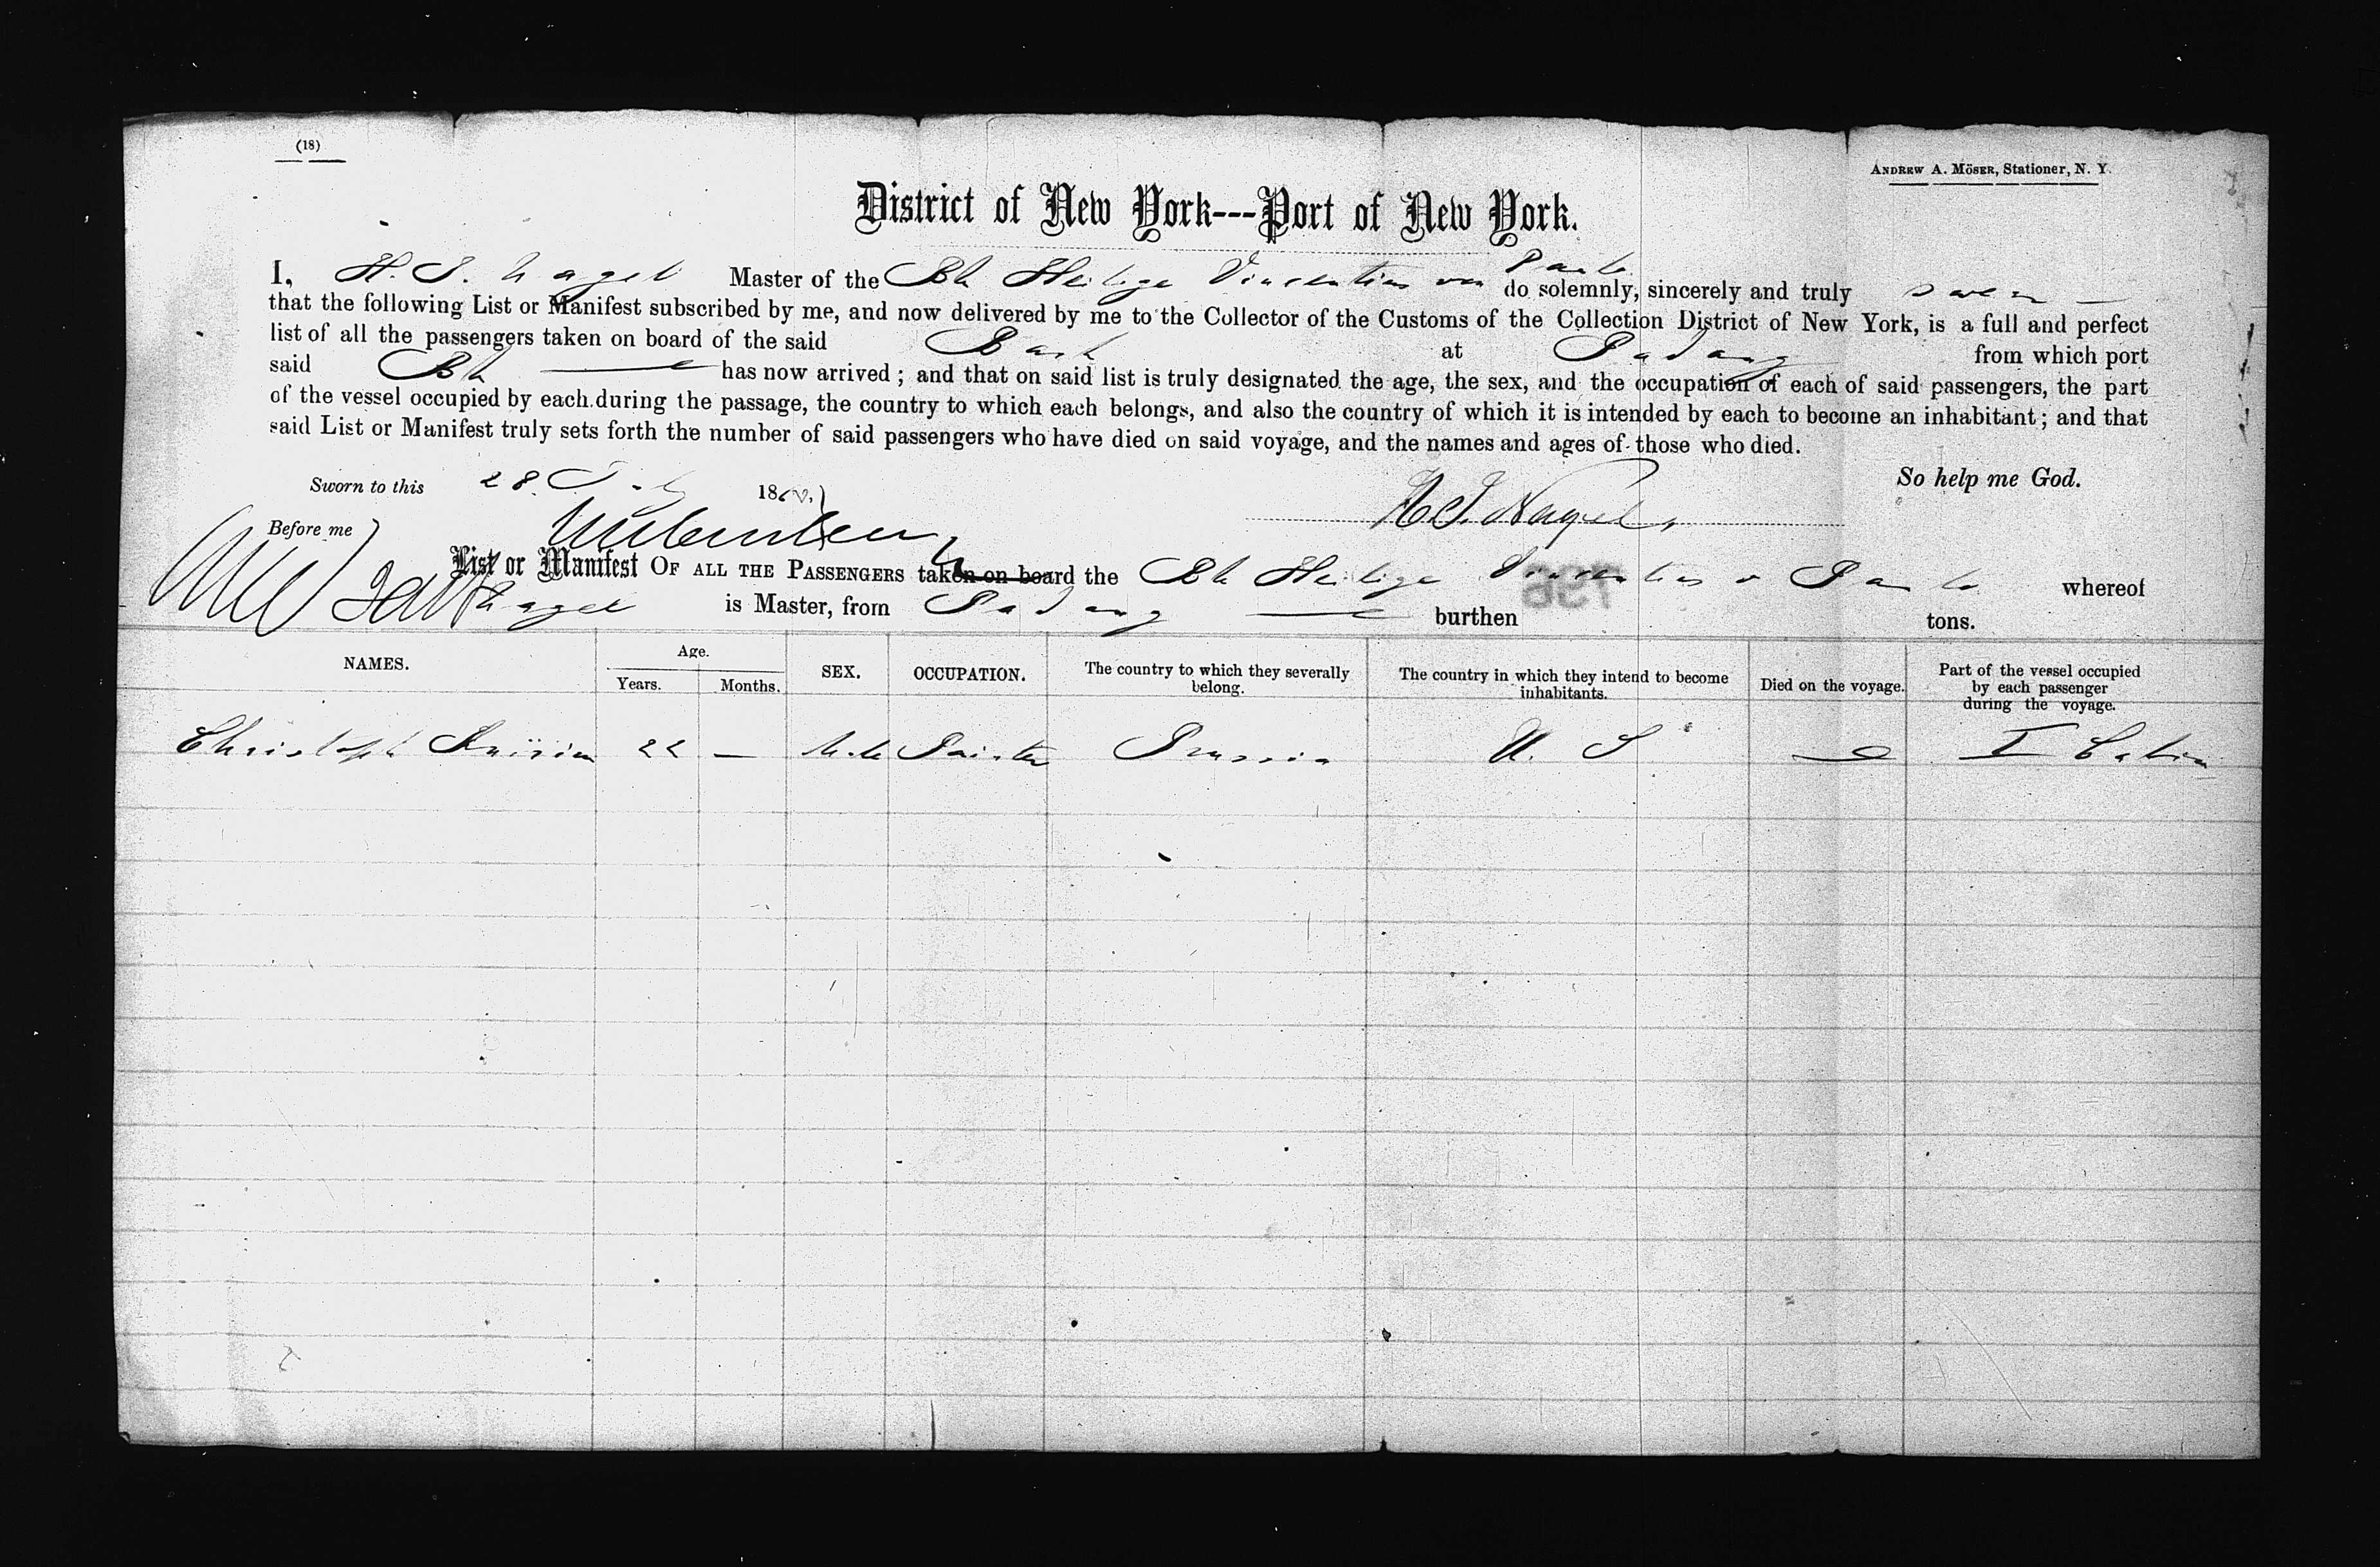 (18)
ANDREW A. MÖSER, Stationer, N. Y.
District of New York---Port of New York.
I, H. J. Nagel Master of the Bk Heilige Vincentius van Paulo do solemnly, sincerely and truly swear
that the following List or Manifest subscribed by me, and now delivered by me to the Collector of the Customs of the Collection District of New York, is a full and perfect
list of all the passengers taken on board of the said Bark at Padang from which port
said Bk has now arrived ; and that on said list is truly designated the age, the sex, and the occupation of each of said passengers, the part
of the vessel occupied by each during the passage, the country to which each belongs, and also the country of which it is intended by each to become an inhabitant ; and that
said List or Manifest truly sets forth the number of said passengers who have died on said voyage, and the names and ages of those who died.
So help me God.
Sworn to this 28. July 186
H. J. Nagel
Before me
List or Manifest OF ALL THE PASSENGERS taken on board the Bk Heilige Vincentius v Paulo whereof
Nagel is Master, from Padang burthen 796 tons.
NAMES. Age. Years. Months. SEX. OCCUPATION. The country to which they severally belong. The country in which they intend to become inhabitants. Died on the voyage. Part of the vessel occupied by each passenger during the voyage.
Christoph 22 — Male Painter Prussia U. S — I Cabin